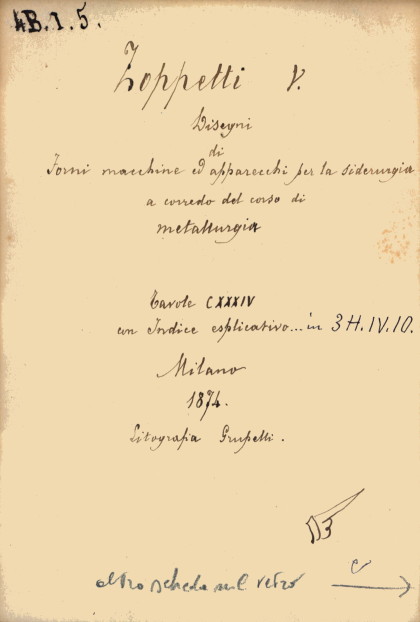 4B.I.5.
Zoppetti V.
Disegni
di
Forni macchine ed apparecchi per la siderurgia
a corredo del corso di
metallurgia
Tavole CXXXIV
con Indice esplicativo... in 3H.IV.10.
Milano
1874.
Litografia Grupelli.
altra scheda sul retro